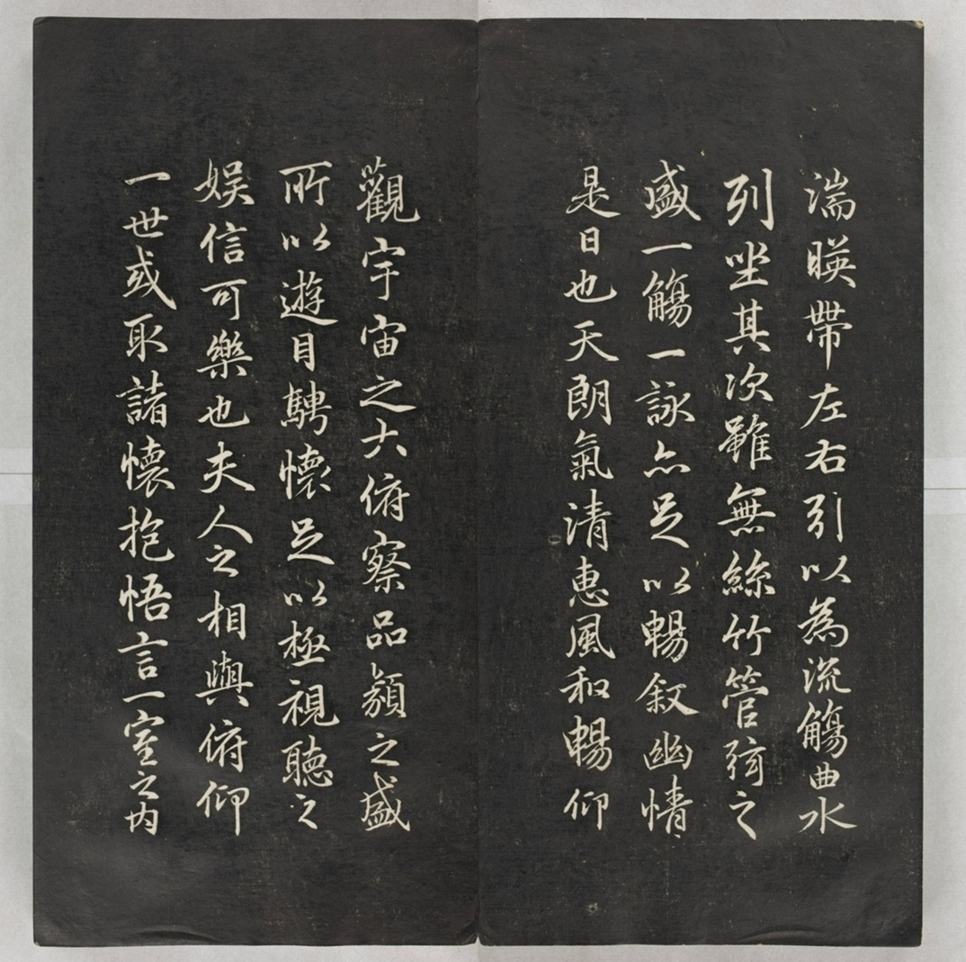 湍暎帶左右引以為流觴曲水
列坐其次雖無絲竹管弦之
盛一觴一詠亦足以暢叙幽情
是日也天朗氣清惠風和暢仰
觀宇宙之大俯察品類之盛
所以遊目騁懷足以極視聽之
娱信可樂也夫人之相與俯仰
一世或取諸懷抱悟言一室之內